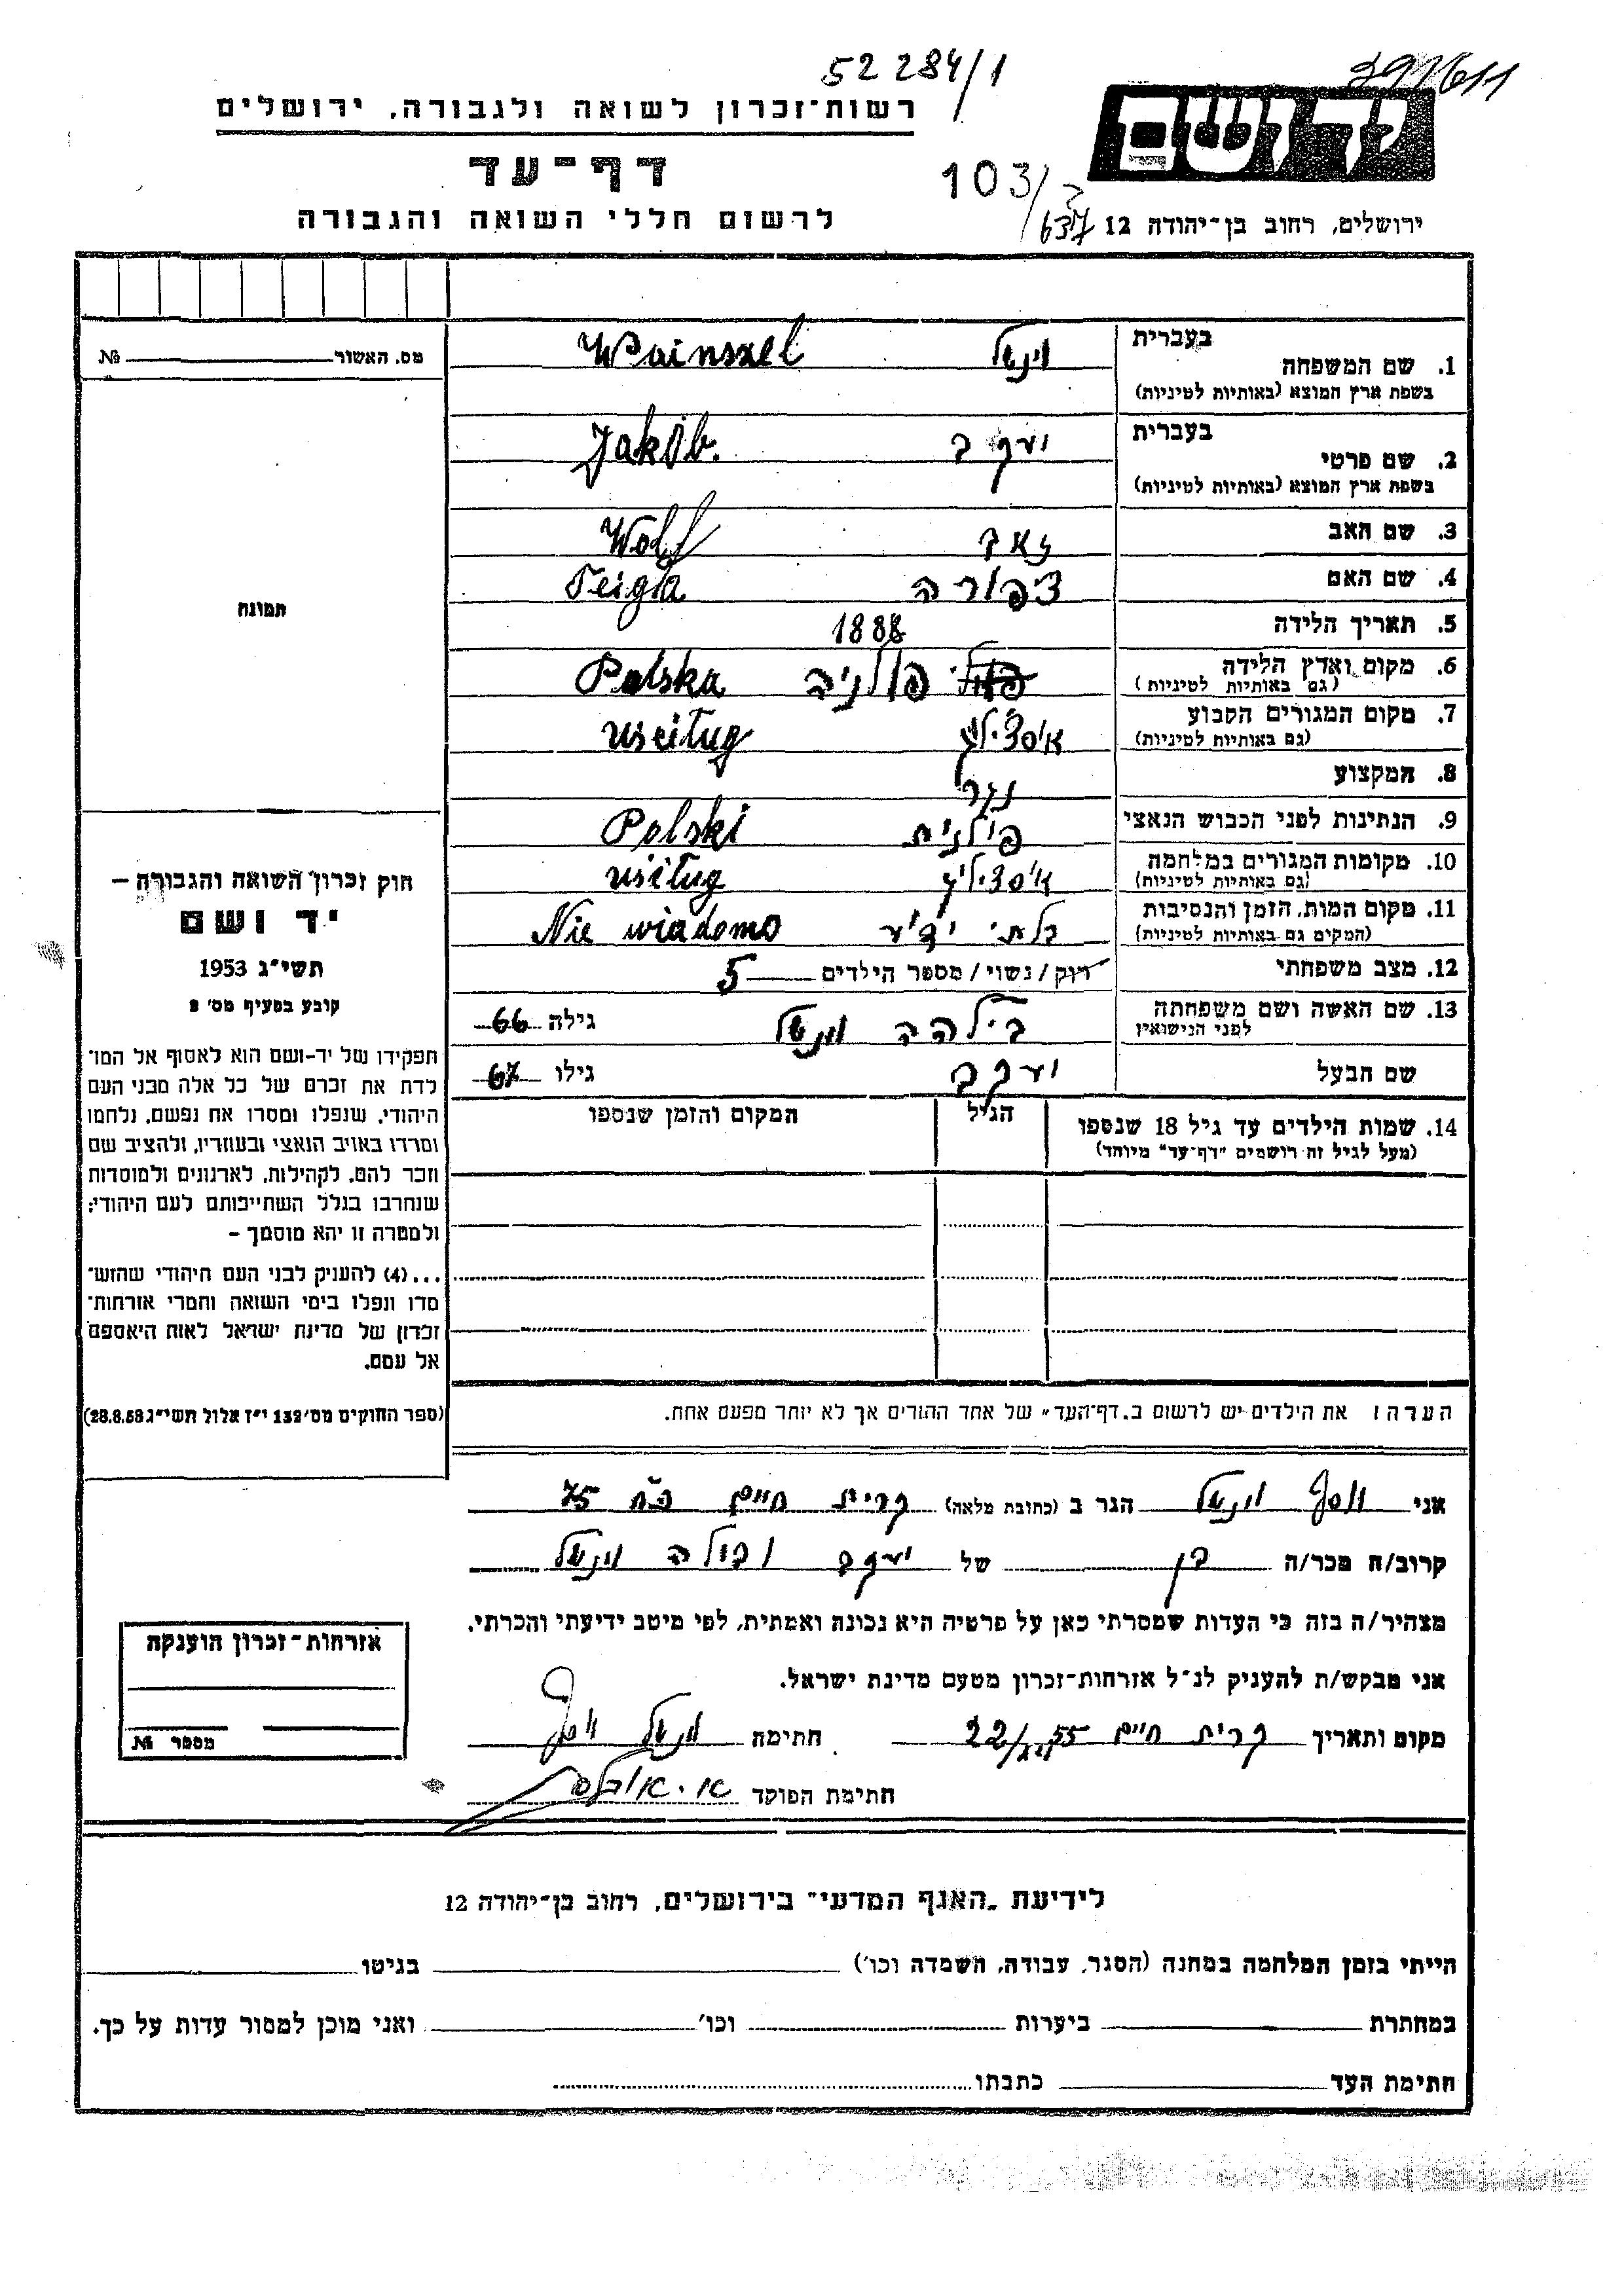 52284/1
391611
יד ושם
רשות־זכרון לשואה ולגבורה, ירושלים
דף־עד
לרשום חללי השואה והגבורה
103/
637
ירושלים, רחוב בן־יהודה 12
מס. האשור № 
בעברית
1. שם המשפחה
(בשפת ארץ המוצא (באותיות לטיניות
וינשל Wainszel
בעברית
2. שם פרטי
(בשפת ארץ המוצא (באותיות לטיניות
יעקב Jakób.
3. שם האב זאב Wolf
4. שם האם ציפורה Feigla
5. תאריך הלידה 1888
6. מקום וארץ הלידה פולניה Polska
(גם באותיות לטיניות)
7. מקום המגורים הקבוע איסצילוג Uscitug
(גם באותיות לטיניות)
8. המקצוע נגר
9. הנתינות לפני הכבוש הנאצי פולנית Polski
10. מקומות המגורים במלחמה Uscitug
(גם באותיות לטיניות)
11. מקום המות, הזמן והנסיבות בלתי ידוע Nie wiadomo
(המקום גם באותיות לטיניות)
12. מצב משפחתי רוק / נשוי / מספר הילדים 5
13. שם האשה ושם משפחתה בילהה וינשל גילה 66
לפני הנישואין
שם הבעל יעקב גילו 67
14. שמות הילדים עד גיל 18 שנספו הגיל המקום והזמן שנספו
(מעל לגיל זה רושמים "דף־עד" מיוחד)
תמונה
חוק זכרון השואה והגבורה –
יד ושם
תשי"ג 1953
קובע בסעיף מס' 2
תפקידו של יד-ושם הוא לאסוף אל המו־
לדת את זכרם של כל אלה מבני העם
היהודי, שנפלו ומסרו את נפשם, נלחמו
ומרדו באויב הנאצי ובעוזריו, ולהציב שם
וזכר להם, לקהילות, לארגונים ולמוסדות
שנחרבו בגלל השתייכותם לעם היהודי;
ולמטרה זו יהא מוסמך –
...(4) להעניק לבני העם היהודי שהוש־
מדו ונפלו בימי השואה והמרי אזרחות־
זכרון של מדינת ישראל לאות היאספם
אל עמם.
(ספר החוקים מס' 132 י"ז אלול תשי"ג 28.8.53)
הערה: את הילדים יש לרשום ב"דף־העד" של אחד ההורים אך לא יותר מפעם אחת.
אני יוסף וינשל הגר ב (כתובת מלאה) קרית חיים 75
קרוב/ה מכר/ה בן של יעקב ובילה וינשל
מצהיר/ה בזה כי העדות שמסרתי כאן על פרטיה היא נכונה ואמתית, לפי מיטב ידיעתי והכרתי.
אני מבקש/ת להעניק לנ"ל אזרחות־זכרון מטעם מדינת ישראל.
מקום ותאריך קרית חיים 22/ 55 חתימה וינשל יוסף
חתימת הפוקד
אזרחות־זכרון הוענקה
מספר №
לידיעת "האגף המדעי" בירושלים, רחוב בן־יהודה 12
הייתי בזמן המלחמה במחנה (הסגר, עבודה, השמדה וכו') בגיטו
במחתרת ביערות וכו' ואני מוכן למסור עדות על כך.
חתימת העד כתבתו